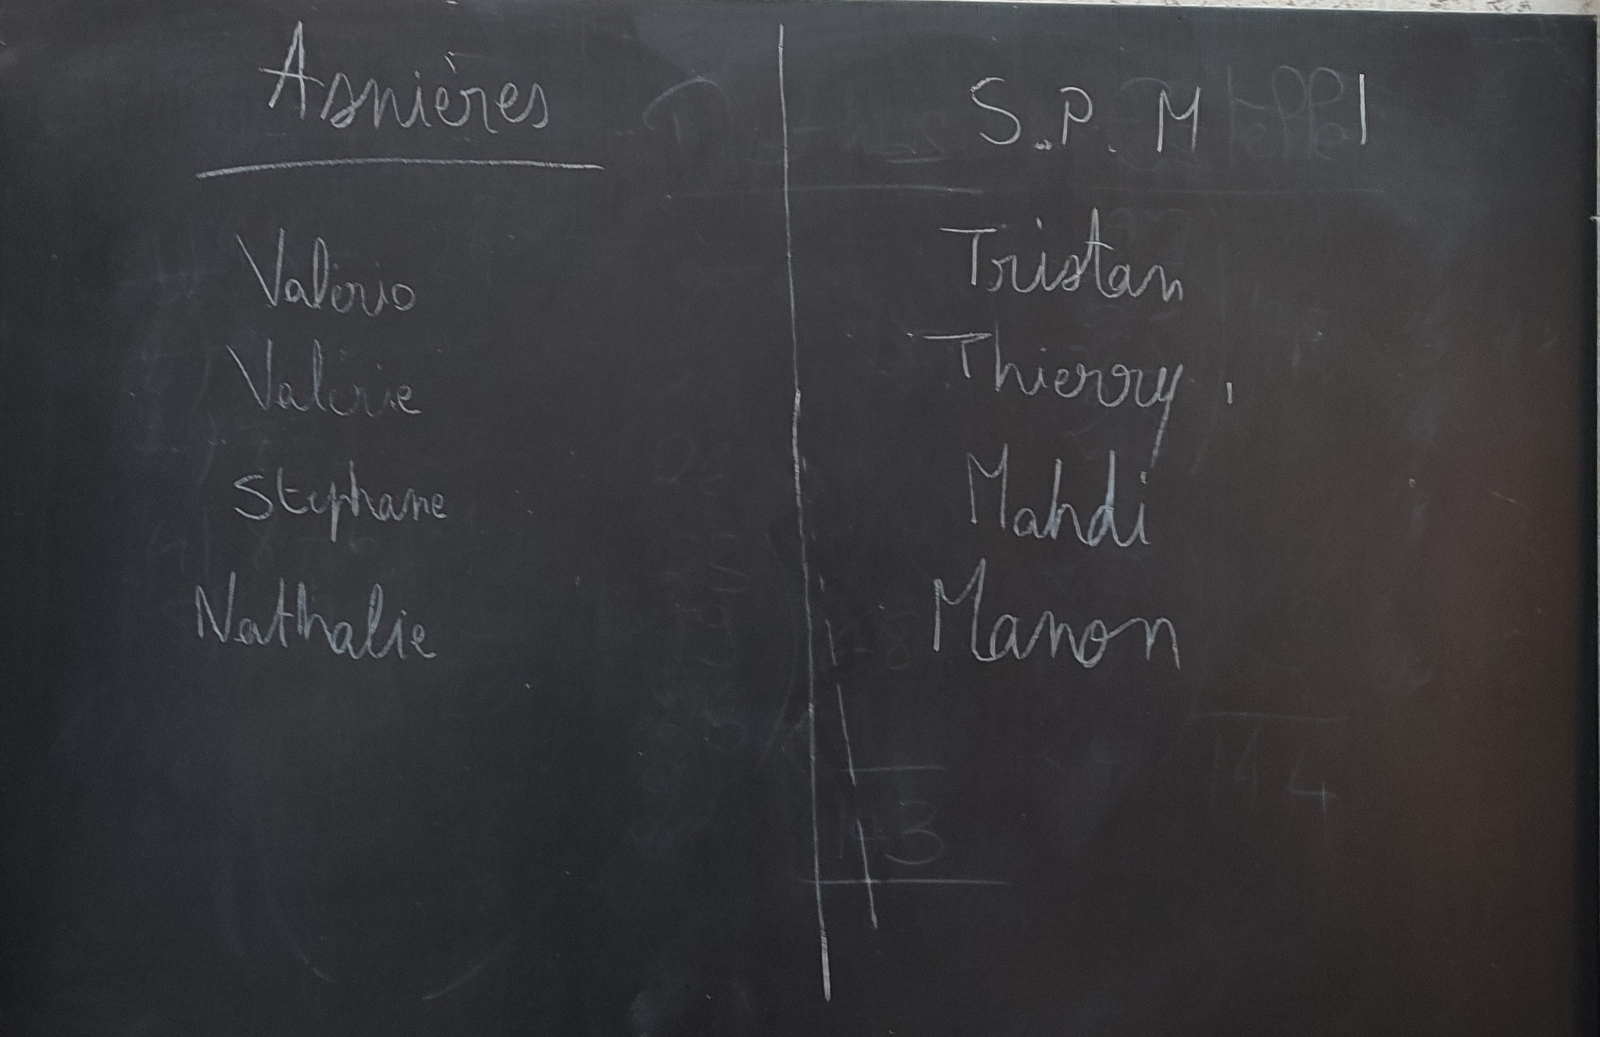 Asnières
Valerio
Valerie
Stephane
Nathalie
S.P.M 1
Tristan
Thierry
Mahdi
Manon
144